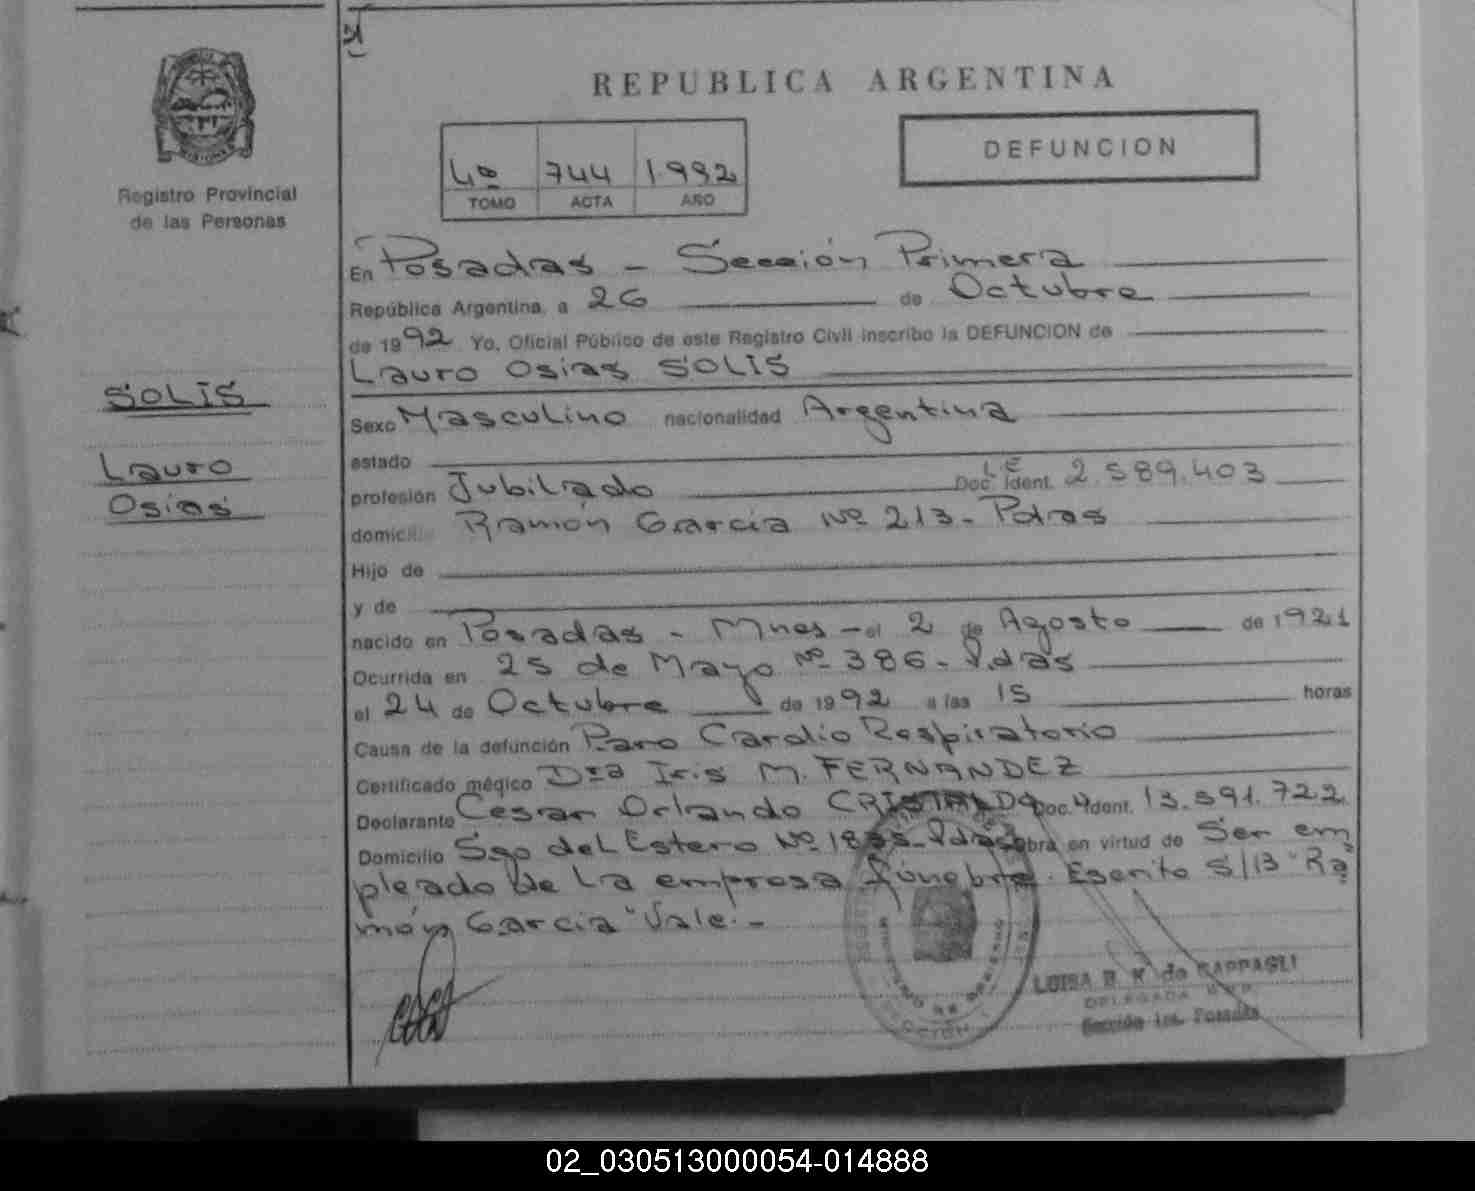 Registro Provincial
de las Personas
SOLIS
Lauro
Osias
REPUBLICA ARGENTINA
DEFUNCION
4º 744 1992
TOMO ACTA AÑO
En Posadas - Sección Primera
República Argentina, a 26 de Octubre
de 1992 Yo, Oficial Público de este Registro Civil inscribo la DEFUNCION de
Lauro Osias SOLIS
Sexo Masculino nacionalidad Argentina
estado
profesión Jubilado L E Doc. Ident. 2.589.403
domicilio Ramón Garcia Nº 213- Pdas
Hijo de
y de
nacido en Posadas - Mnes - el 2 de Agosto de 1921
Ocurrida en 25 de Mayo Nº 386- Pdas
el 24 de Octubre de 1992 a las 15 horas
Causa de la defunción Paro Cardio Respiratorio
Certificado médico Dra Iris M. FERNANDEZ
Declarante Cesar Orlando CRISTALDO Doc. Ident. 13.591.722
Domicilio Sgo del Estero Nº Pdas obra en virtud de Ser em
pleado de la empresa fúnebre. Escrito S/B "Ra
món Garcia" Vale.-
LUISA B. K. de CAPPAGLI
DELEGADA
Sección 1ra. Posadas
02_030513000054-014888